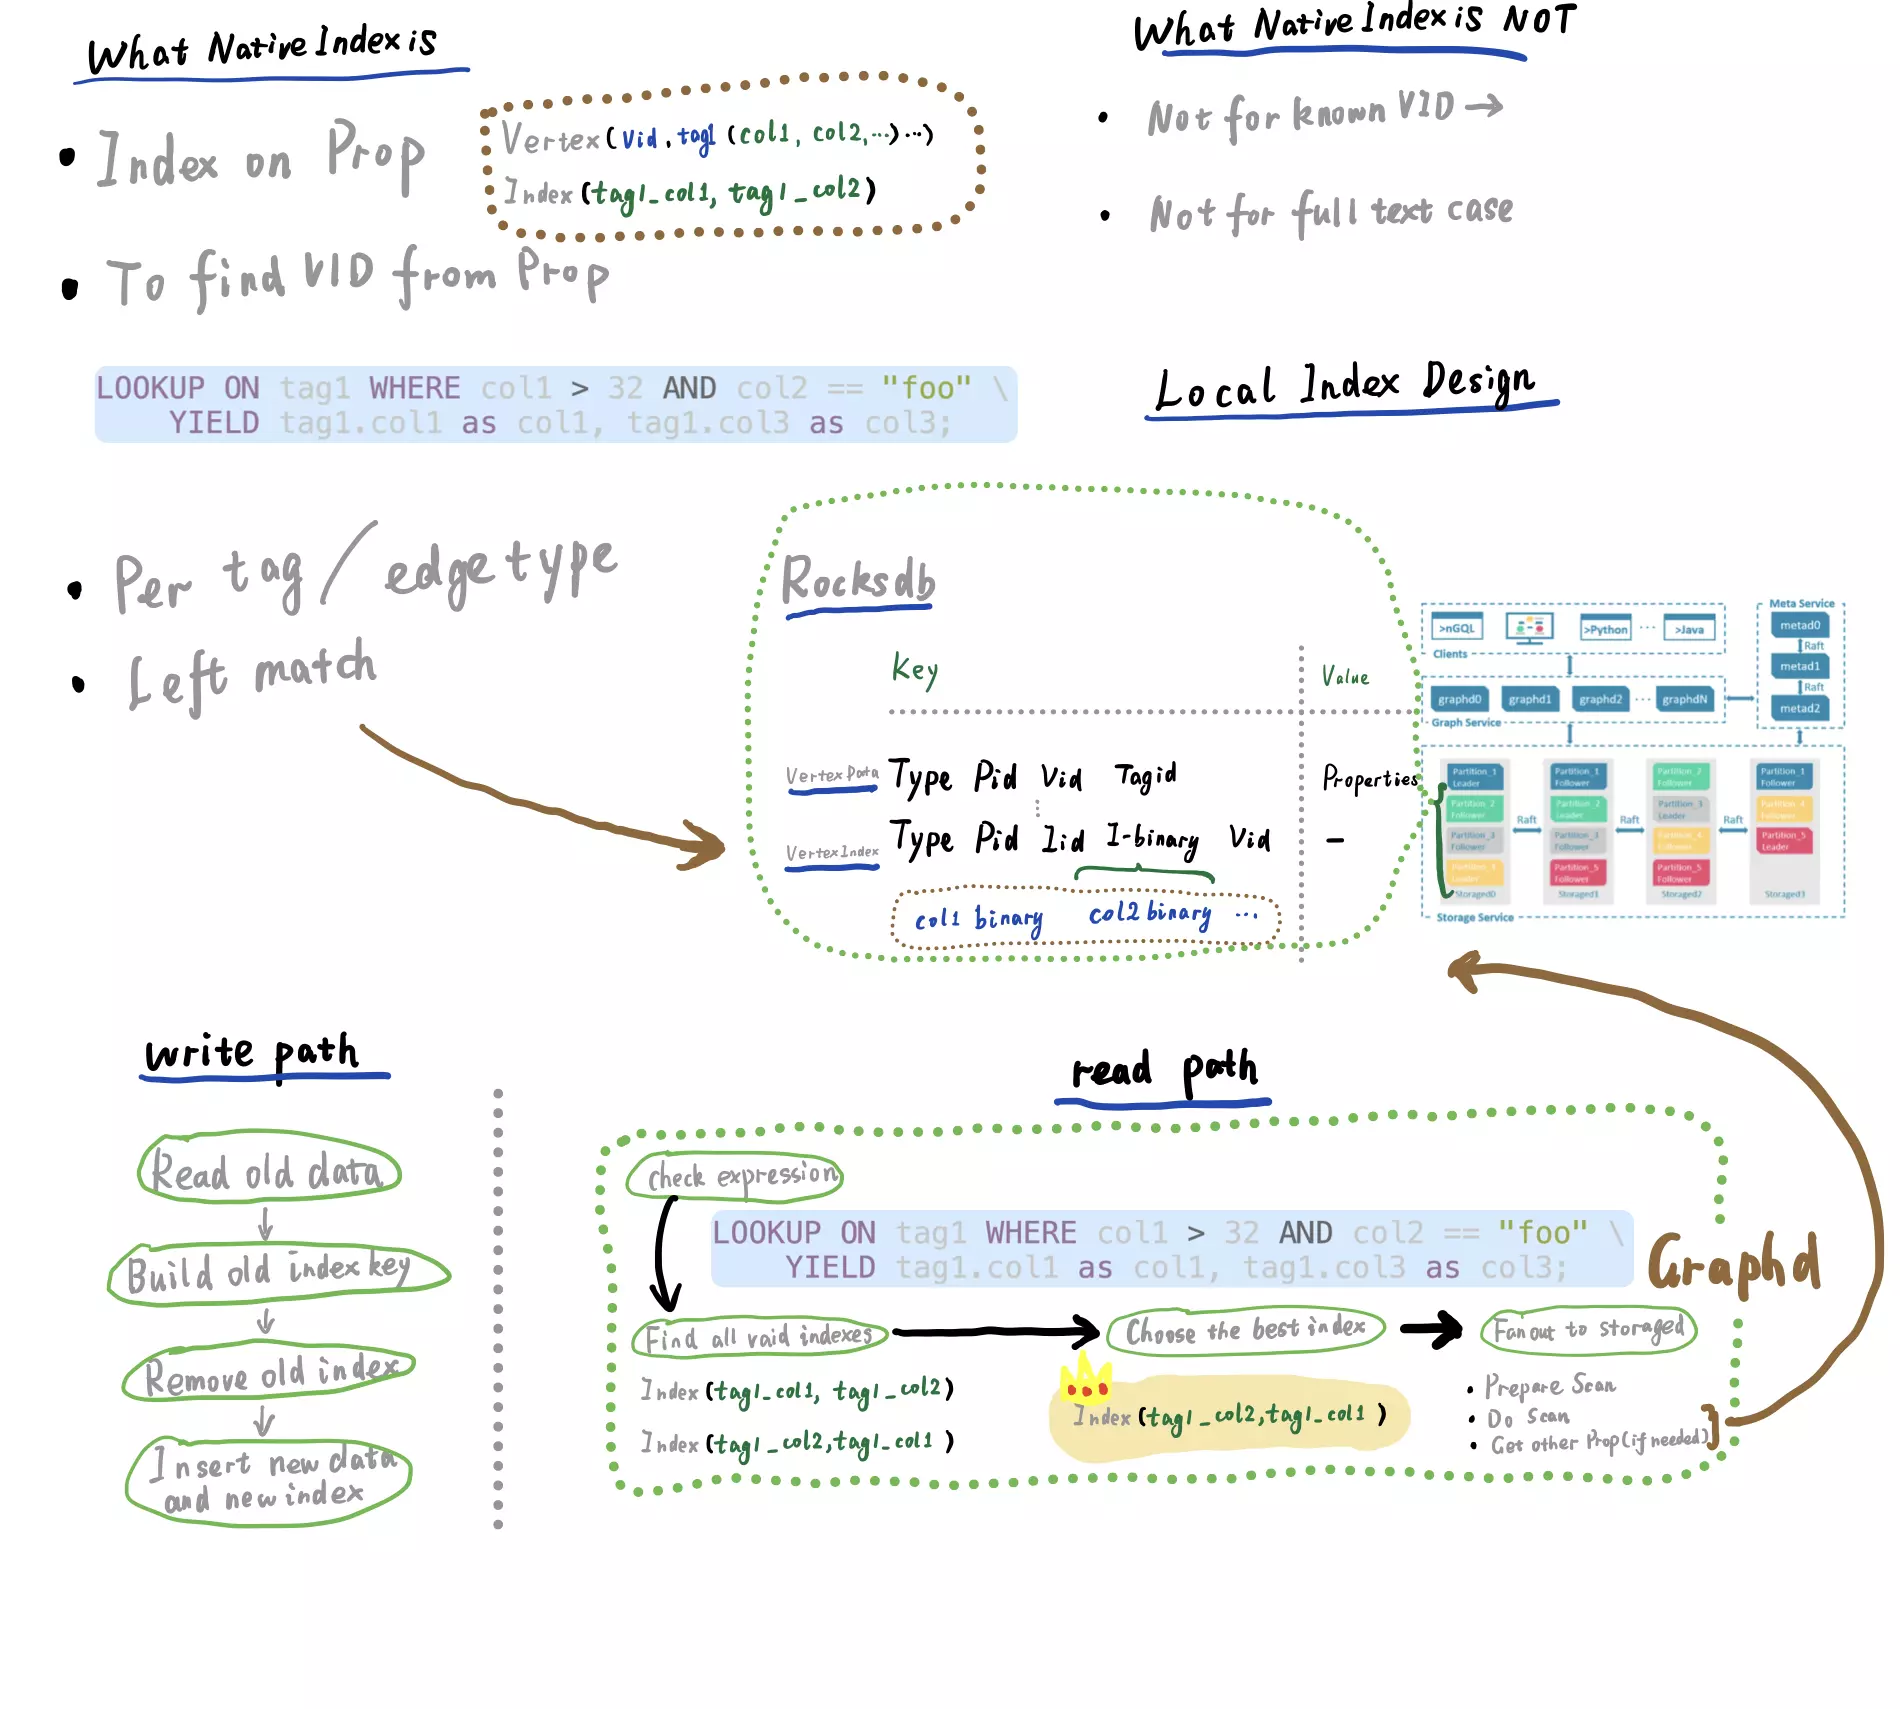 What Native Index is
• Index on Prop
Vertex(Vid, tag1 (col1, col2,...)...)
Index(tag1_col1, tag1_col2)
• To find VID from Prop
LOOKUP ON tag1 WHERE col1 > 32 AND col2 == "foo" \
YIELD tag1.col1 as col1, tag1.col3 as col3;
• Per tag / edge type
• Left match
What Native Index is NOT
• Not for known VID →
• Not for full text case
Local Index Design
Rocksdb
Key Value
Vertex Data Type Pid Vid Tagid Properties
Vertex Index Type Pid Iid I-binary Vid –
col1 binary col2 binary ...
>nGQL >Python ... >Java
Clients
graphd0 graphd1 graphd2 ... graphdN
Graph Service
Meta Service
metad0
Raft
metad1
Raft
metad2
Partition_1 Leader Partition_1 Follower Partition_2 Follower Partition_1 Follower
Partition_2 Follower Partition_2 Leader Partition_3 Leader Partition_4 Follower
Raft Raft Raft
Partition_3 Follower Partition_3 Follower Partition_4 Partition_5 Leader
Follower Leader Partition_5 Follower Partition_5 Follower
Storaged0 Storaged1 Storaged2 Storaged3
Storage Service
write path
Read old data
Build old index key
Remove old index
Insert new data
and new index
read path
check expression
LOOKUP ON tag1 WHERE col1 > 32 AND col2 == "foo" \
YIELD tag1.col1 as col1, tag1.col3 as col3;
Graphd
Find all vaid indexes
Index(tag1_col1, tag1_col2)
Index(tag1_col2,tag1_col1 )
Choose the best index
Index(tag1_col2,tag1_col1 )
Fan out to storaged
• Prepare Scan
• Do Scan
• Get other Prop(if needed)